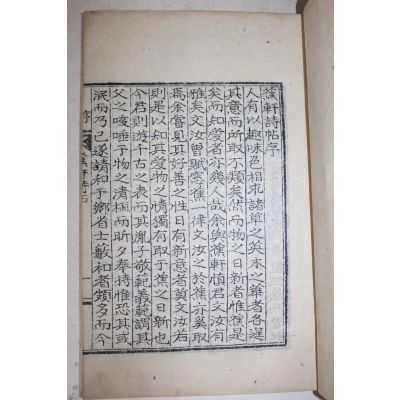 蕉軒詩帖序
人有以趣味色相求諸草之英木之華者各逞
其意而所取不類矣然而物之日新者惟蕉是
矣而知愛者亦幾人哉余與蕉軒愼君文汝有
雅矣文汝曾賦窓蕉一律文汝之於蕉亦奚取
焉余嘗見其好善之性日有新意者莫文汝右
則是以知其愛物之情獨有取于蕉之日新也
今君則遊千古之表而其胤子敬範義範謂其
父之咳唾于物之清植而昕夕奉持惟恐其或
泯而乃已遂請和于鄕省士藪和者頗多而今
序
蕉軒詩帖
一